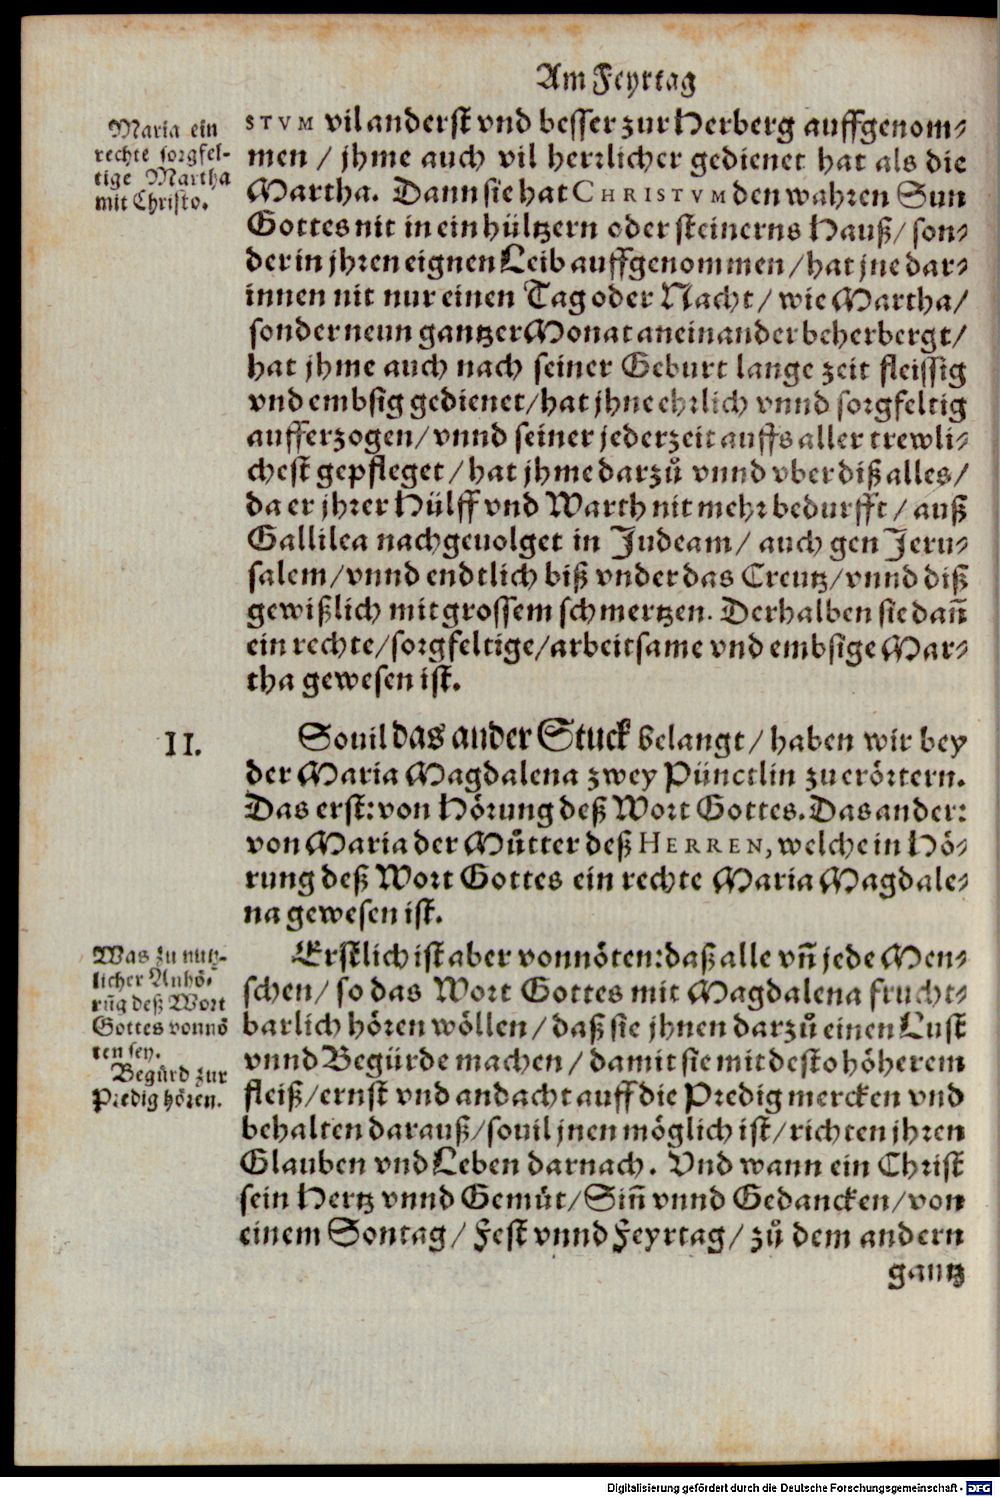 Am Feyrtag
Maria ein
rechte sorgfel-
tige Martha
mit Christo.
STVM vil anderst vnd besser zur Herberg auffgenom-
men / jhme auch vil herrlicher gedienet hat als die
Martha. Dann sie hat CHRISTVM den wahren Sun
Gottes nit in ein hültzern oder steinerns Hauß / son-
der in jhren eignen Leib auffgenommen / hat jne dar-
innen nit nur einen Tag oder Nacht / wie Martha /
sonder neun gantzer Monat aneinander beherbergt /
hat jhme auch nach seiner Geburt lange zeit fleissig
vnd embsig gedienet / hat jhne ehrlich vnnd sorgfeltig
aufferzogen / vnnd seiner jederzeit auffs aller trewli-
chest gepfleget / hat jhme darzů vnnd vber diß alles /
da er jhrer Hülff vnd Warth nit mehr bedurfft / auß
Gallilea nachgeuolget in Judeam / auch gen Jeru-
salem / vnnd endtlich biß vnder das Creutz / vnnd diß
gewißlich mit grossem schmertzen. Derhalben sie dañ
ein rechte / sorgfeltige / arbeitsame vnd embsige Mar-
tha gewesen ist.
II.
Souil das ander Stuck belangt / haben wir bey
der Maria Magdalena zwey Pünctlin zu erörtern.
Das erst: von Hörung deß Wort Gottes. Das ander:
von Maria der Můtter deß HERREN, welche in Hö-
rung deß Wort Gottes ein rechte Maria Magdale-
na gewesen ist.
Was zu nutz-
licher Anhö-
rũg deß Wort
Gottes vonnö
ten sey.
Begürd zur
Predig hören.
Erstlich ist aber vonnöten: daß alle vñ jede Men-
schen / so das Wort Gottes mit Magdalena frucht-
barlich hören wöllen / daß sie jhnen darzů einen Lust
vnnd Begürde machen / damit sie mit desto höherem
fleiß / ernst vnd andacht auff die Predig mercken vnd
behalten darauß / souil jnen möglich ist / richten jhren
Glauben vnd Leben darnach. Vnd wann ein Christ
sein Hertz vnnd Gemüt / Siñ vnnd Gedancken / von
einem Sontag / Fest vnnd Feyrtag / zů dem andern
gantz
Digitalisierung gefördert durch die Deutsche Forschungsgemeinschaft - DFG